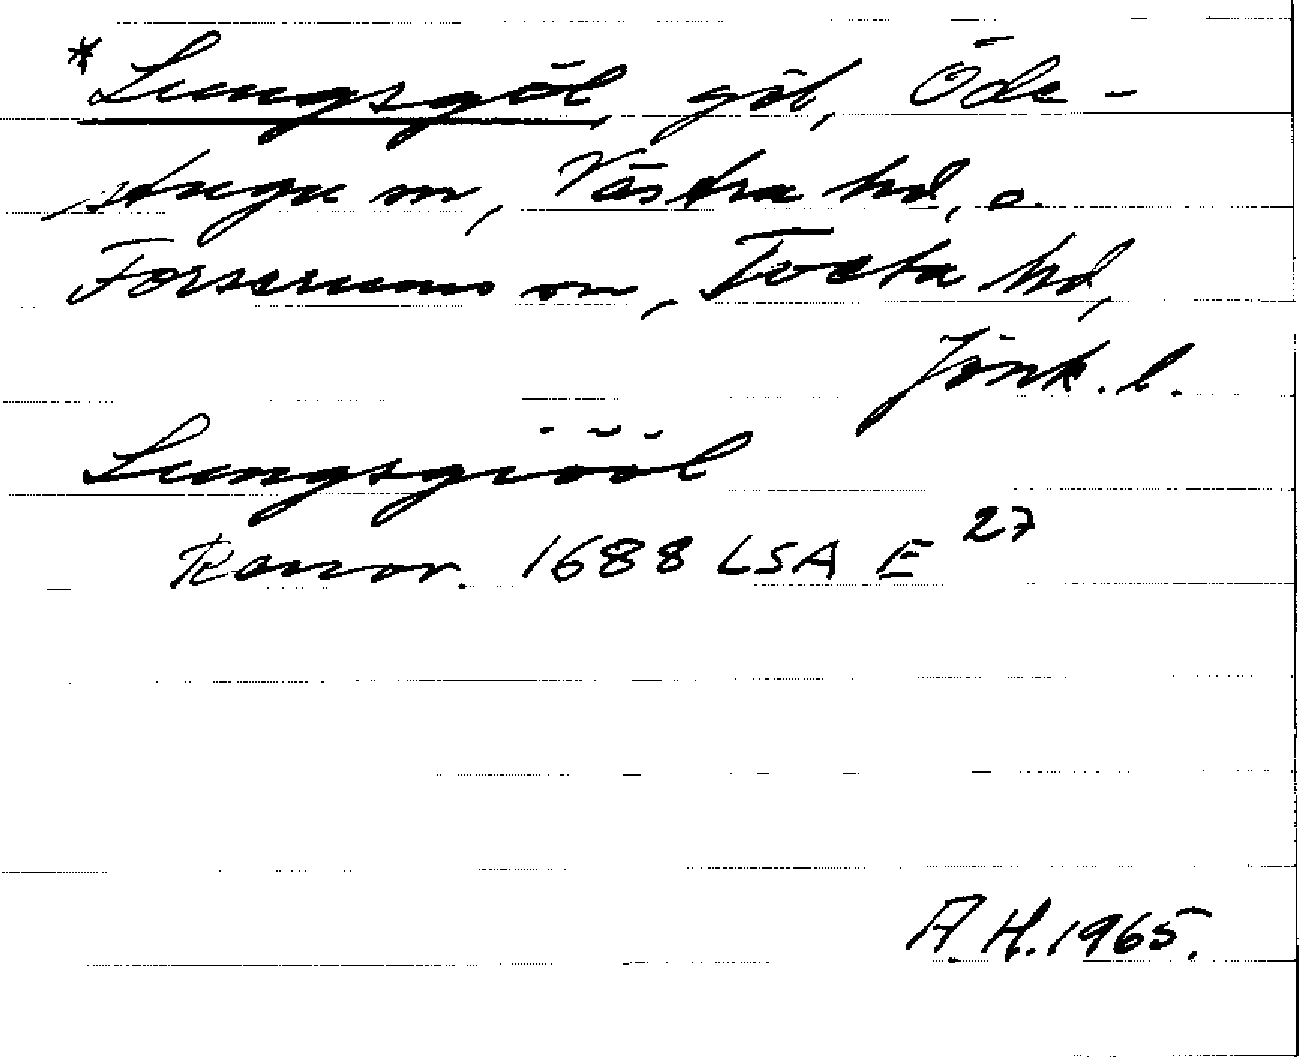 *Lungsgöl göl, Öde-
stugu sn, Västra hd, o.
Forserums sn, Tveta hd,
Jönk. l.
Lungsgiööl
Ranson. 1688 LSA E 27
A.H. 1965.